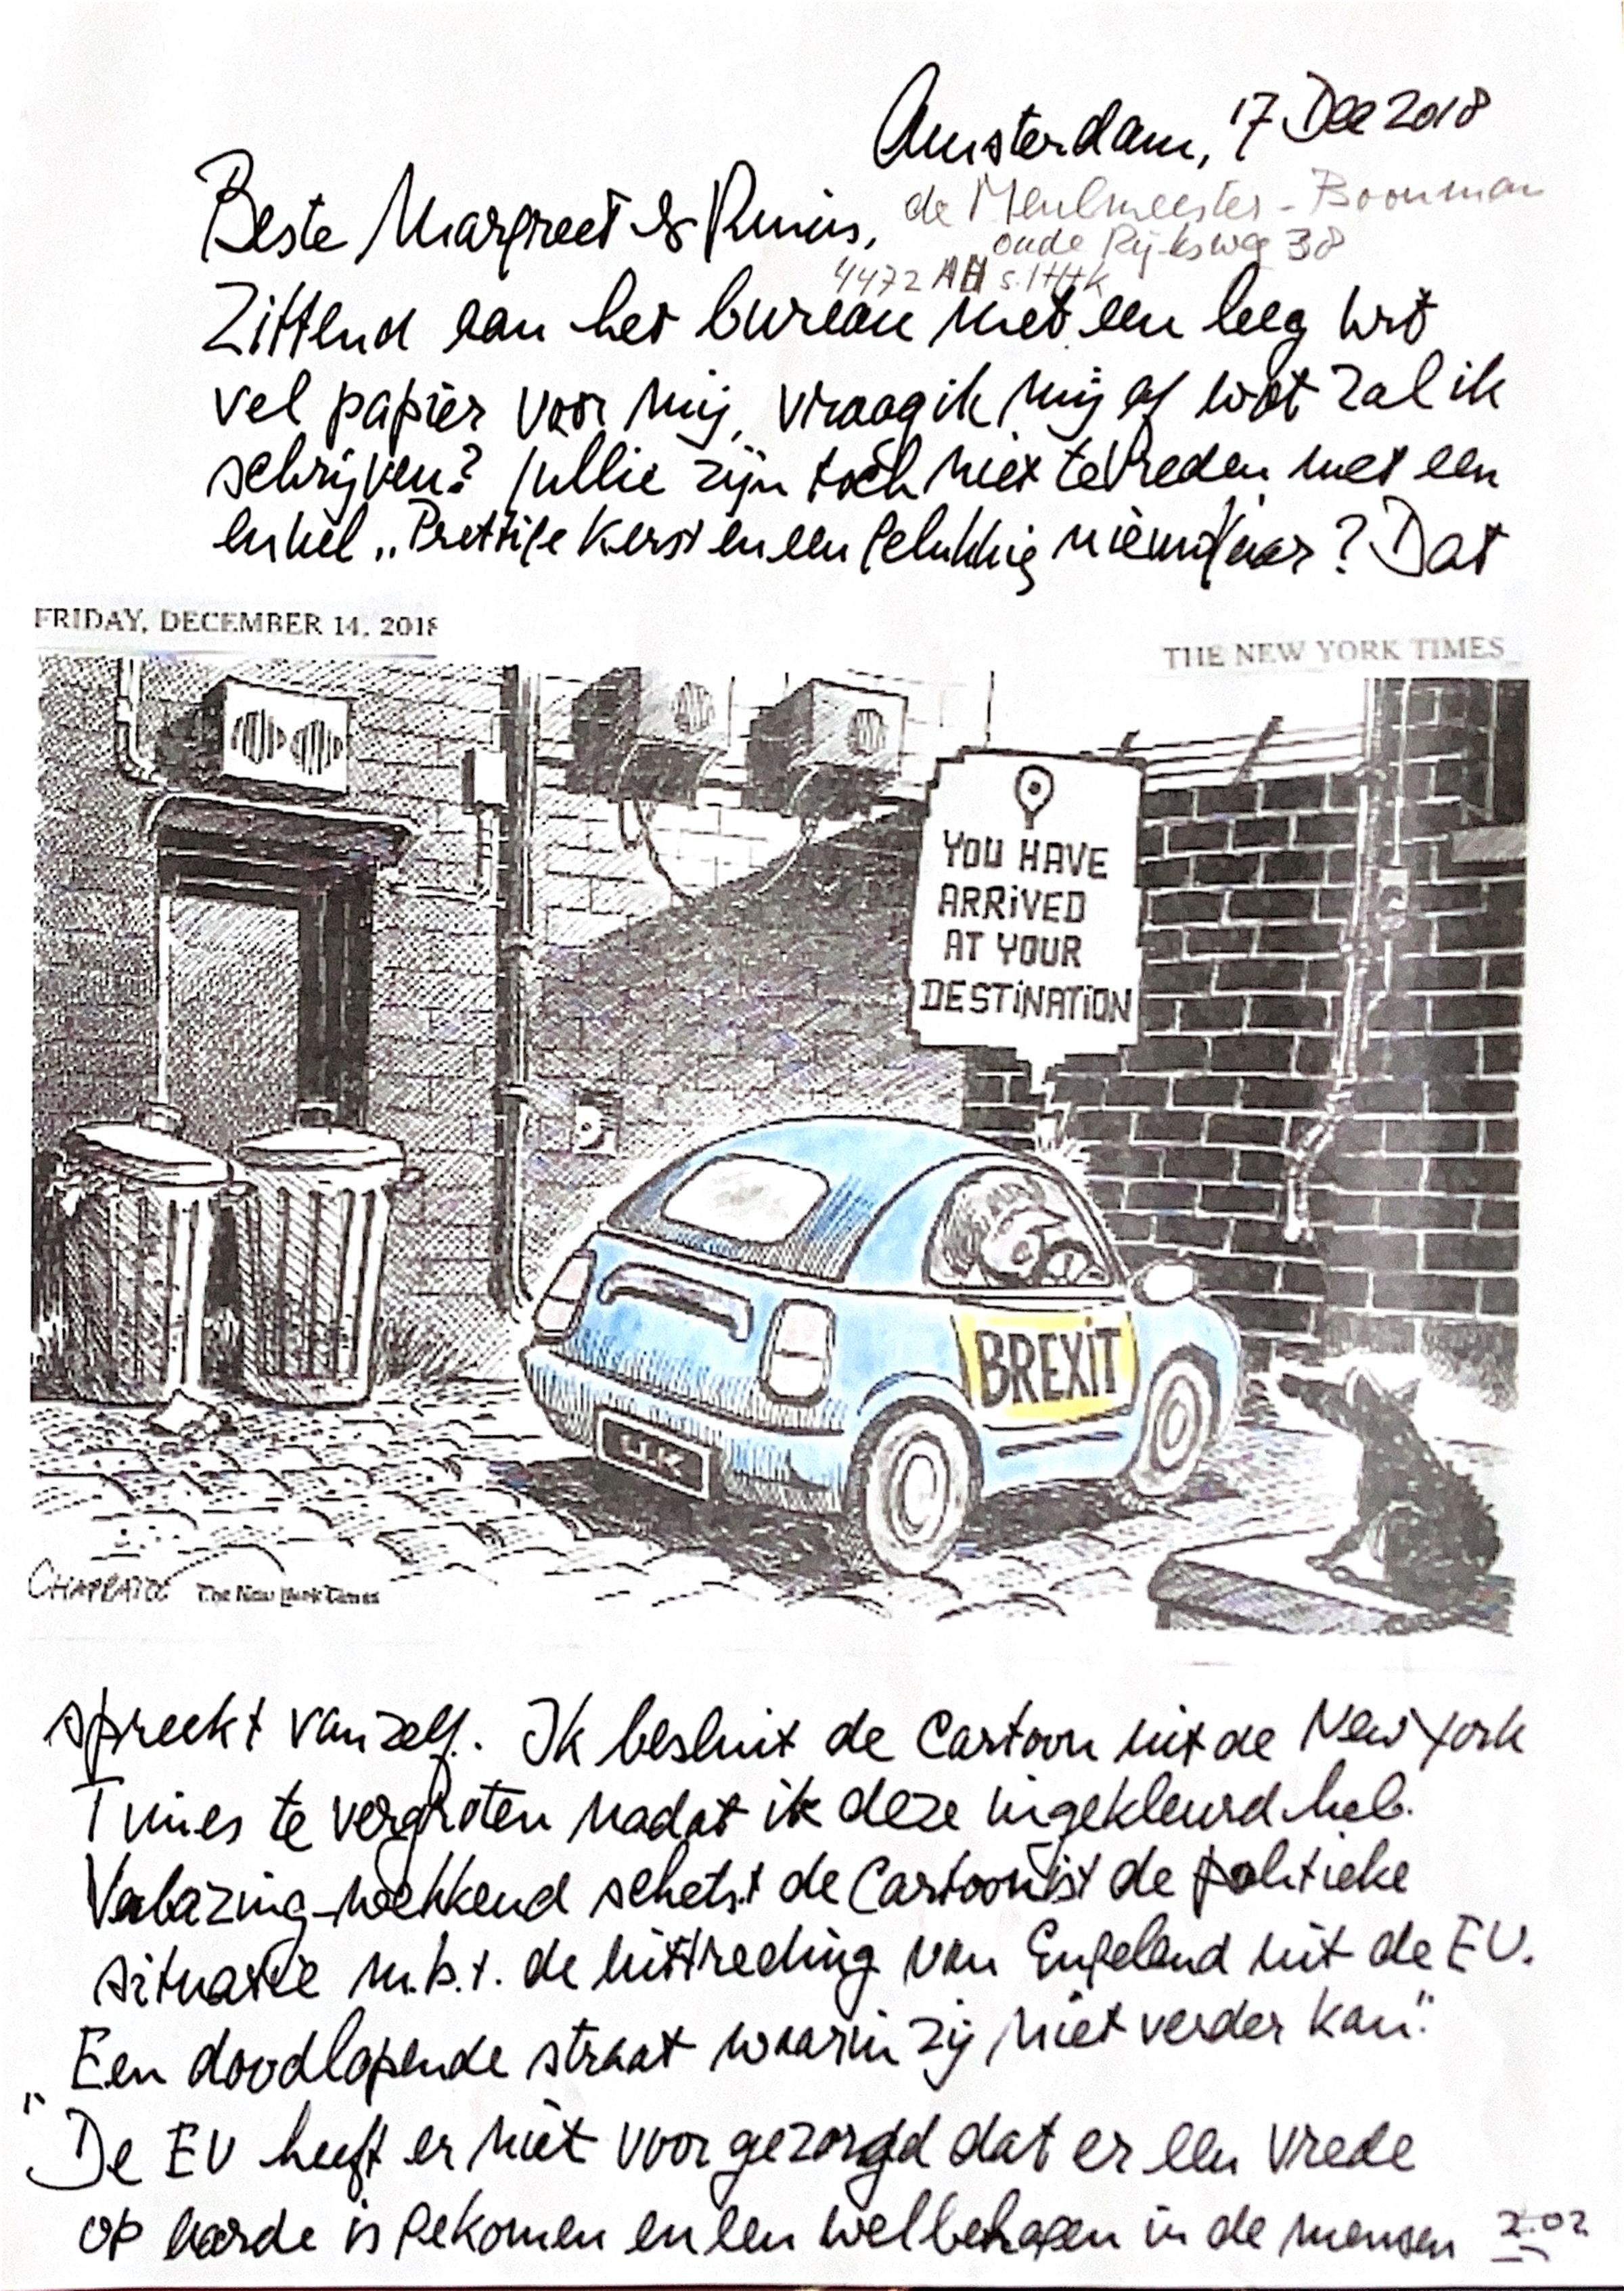 Amsterdam, 17 Dec 2018
Beste Margreet & Rinus,
de Meulmeester - Boonman
oude Rijksweg 38
4472 AH s.HHk
Zittend aan het bureau met een leeg wit
vel papier voor mij, vraag ik mij af wat zal ik
schrijven? Jullie zijn toch niet tevreden met een
enkel „Prettige Kerst en een gelukkig nieuwjaar? Dat
FRIDAY, DECEMBER 14, 2018
THE NEW YORK TIMES
YOU HAVE
ARRIVED
AT YOUR
DESTINATION
BREXIT
U.K
CHAPPATTE The New York Times
spreekt vanzelf. Ik besluit de cartoon uit de New York
Times te vergroten nadat ik deze ingekleurd heb.
Verbazing-wekkend schetst de Cartoonist de politieke
situatie m.b.t. de uittreding van Engeland uit de EU.
Een doodlopende straat waarin zij niet verder kan."
"De EU heeft er niet voor gezorgd dat er een vrede
op aarde is gekomen en een welbehagen in de mensen
2.02